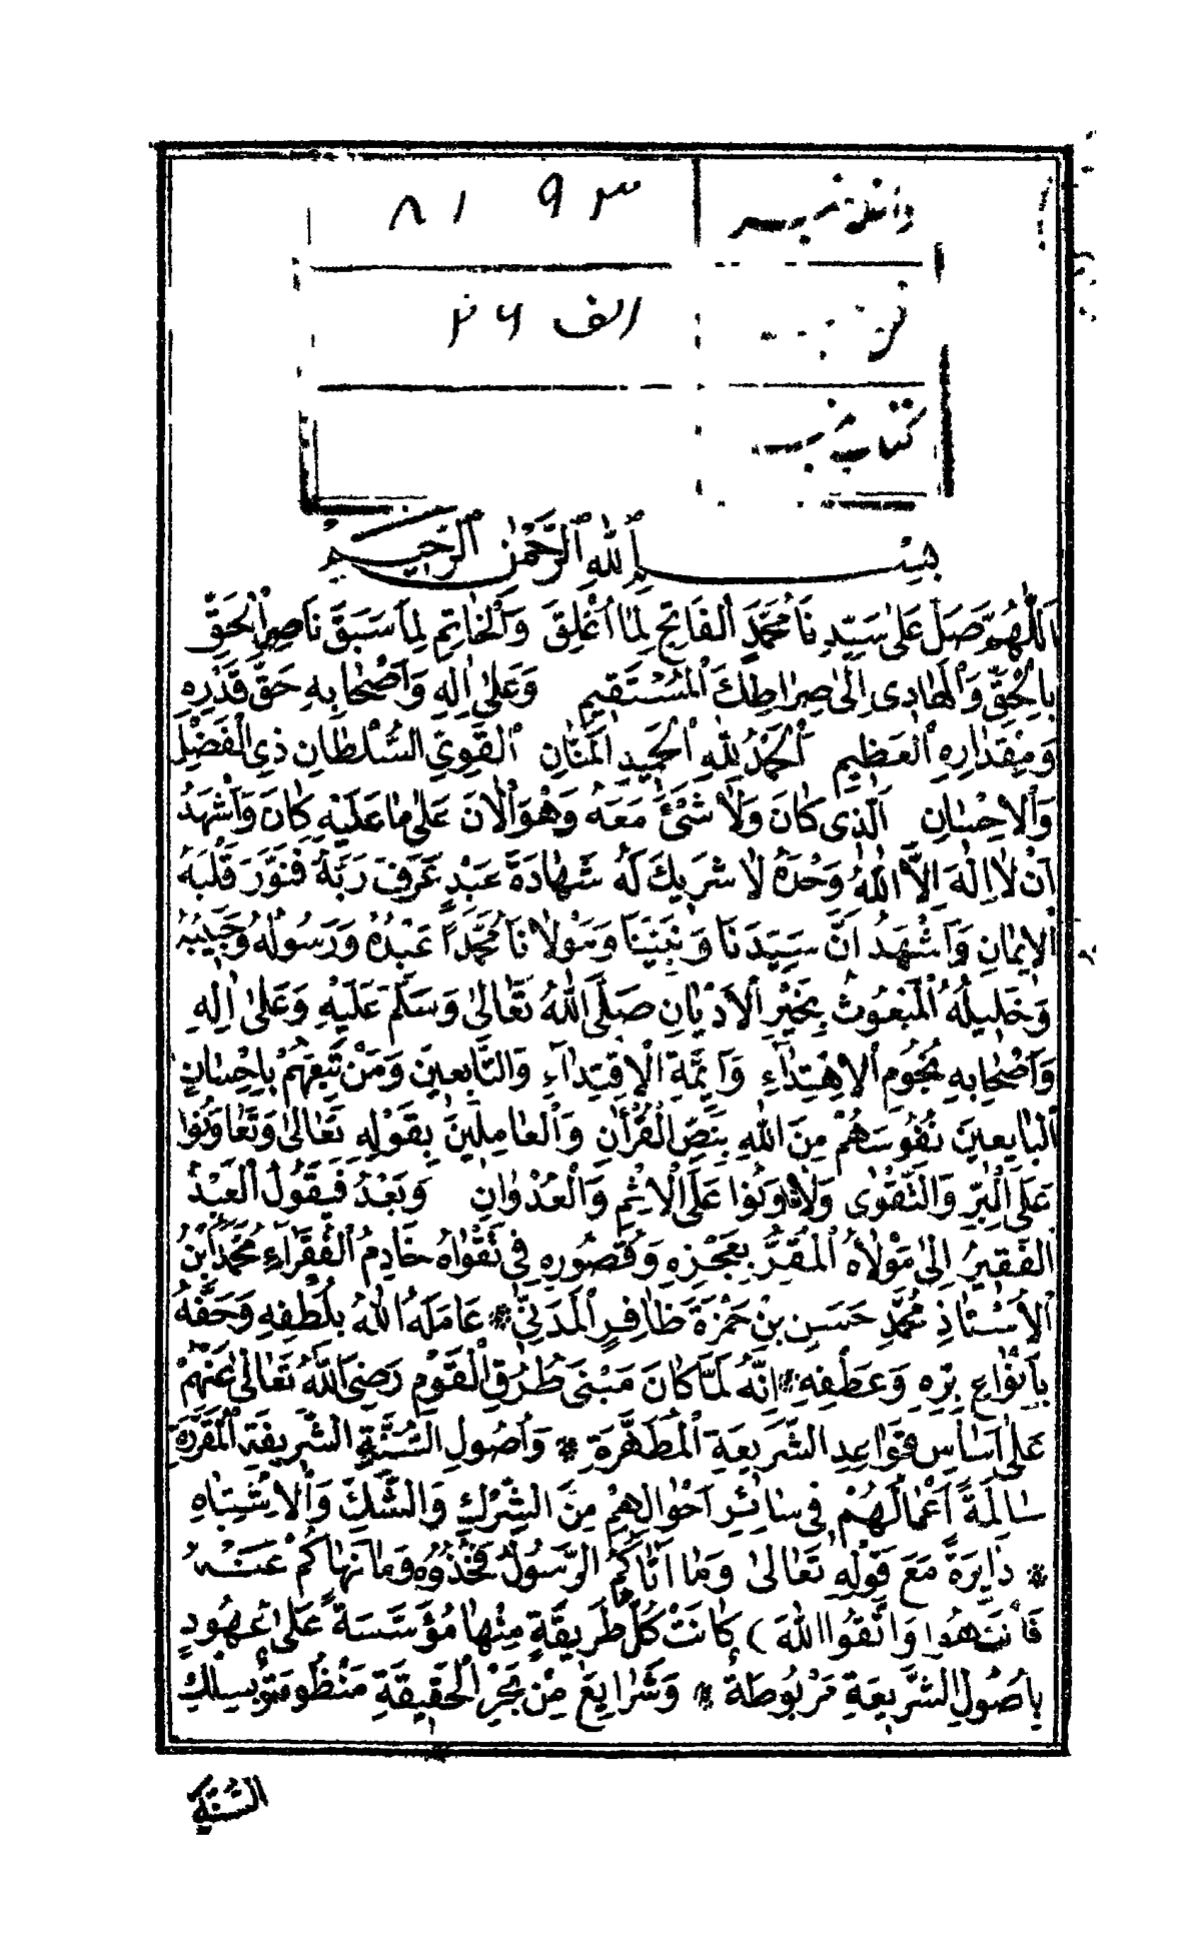 داخله نمبر ٨١ ٩٣
فن نمبر الف ٢٦
كتاب نمبر
بِسْمِ اللهِ الرَّحْمٰنِ الرَّحِيمِ
اَللّٰهُمَّ صَلِّ عَلٰى سَيِّدِنَا مُحَمَّدٍ الْفَاتِحِ لِمَا اُغْلِقَ وَالْخَاتِمِ لِمَا سَبَقَ نَاصِرِ الْحَقِّ
بِالْحَقِّ وَالْهَادِى اِلٰى صِرَاطِكَ الْمُسْتَقِيمِ وَعَلٰى اٰلِهِ وَاَصْحَابِهِ حَقَّ قَدْرِهِ
وَمِقْدَارِهِ الْعَظِيمِ اَلْحَمْدُ لِلّٰهِ الْحَمِيدِ الْمَنَّانِ الْقَوِيِّ السُّلْطَانِ ذِي الْفَضْلِ
وَالْاِحْسَانِ اَلَّذِى كَانَ وَلَا شَئَ مَعَهُ وَهُوَ الْاٰنَ عَلٰى مَا عَلَيْهِ كَانَ وَاَشْهَدُ
اَنْ لَا اِلٰهَ اِلَّا اللّٰهُ وَحْدَهُ لَا شَرِيكَ لَهُ شَهَادَةَ عَبْدٍ عَرَفَ رَبَّهُ فَنَوَّرَ قَلْبَهُ
الْاِيمَانِ وَاَشْهَدُ اَنَّ سَيِّدَنَا وَنَبِيَّنَا وَمَوْلَانَا مُحَمَّدًا عَبْدُهُ وَرَسُولُهُ وَحَبِيبُهُ
وَخَلِيلُهُ الْمَبْعُوثُ بِخَيْرِ الْاَدْيَانِ صَلَّى اللّٰهُ تَعَالٰى وَسَلَّمَ عَلَيْهِ وَعَلٰى اٰلِهِ
وَاَصْحَابِهِ نُجُومِ الْاِهْتِدَآءِ وَاَئِمَّةِ الْاِقْتِدَآءِ وَالتَّابِعِينَ وَمَنْ تَبِعَهُمْ بِاِحْسَانٍ
الْبَايِعِينَ نُفُوسَهُمْ مِنَ اللّٰهِ بِنَصِّ الْقُرْاٰنِ وَالْعَامِلِينَ بِقَوْلِهِ تَعَالٰى وَتَعَاوَنُوا
عَلَى الْبِرِّ وَالتَّقْوٰى وَلَا تَعَاوَنُوا عَلَى الْاِثْمِ وَالْعُدْوَانِ وَبَعْدُ فَيَقُولُ الْعَبْدُ
الْفَقِيرُ اِلٰى مَوْلَاهُ الْمُقِرُّ بِعَجْزِهِ وَقُصُورِهِ فِى تَقْوَاهُ خَادِمُ الْفُقَرَآءِ مُحَمَّدُ ابْنُ
الْاُسْتَاذِ مُحَمَّدِ حَسَنِ بْنِ حَمْزَةَ ظَافِرٍ الْمَدَنِيِّ * عَامَلَهُ اللّٰهُ بِلُطْفِهِ وَحَفَّهُ
بِاَنْوَاعِ بِرِّهِ وَعَطْفِهِ * اِنَّهُ لَمَّا كَانَ مَبْنٰى طُرُقِ الْقَوْمِ رَضِىَ اللّٰهُ تَعَالٰى عَنْهُمْ
عَلٰى اَسَاسِ قَوَاعِدِ الشَّرِيعَةِ الْمُطَهَّرَةِ * وَاُصُولِ السُّنَّةِ الشَّرِيفَةِ الْمُقَرَّرَةِ
سَالِمَةً اَعْمَالَهُمْ فِى سَائِرِ اَحْوَالِهِمْ مِنَ الشِّرْكِ وَالشَّكِّ وَالْاِشْتِبَاهِ
* دَايِرَةً مَعَ قَوْلِهِ تَعَالٰى وَمَا اٰتَاكُمُ الرَّسُولُ فَخُذُوُهُ وَمَا نَهَاكُمْ عَنْهُ
فَانْتَهُوا وَاتَّقُوا اللّٰهَ ) كَانَتْ كُلُّ طَرِيقَةٍ مِنْهَا مُؤَسَّسَةً عَلٰى عُهُودٍ
بِاُصُولِ الشَّرِيعَةِ مَرْبُوطَةً * وَشَرَايِعَ مِنْ بَحْرِ الْحَقِيقَةِ مَنْظُومَةٍ بِسِلْكِ
السُّنَّةِ